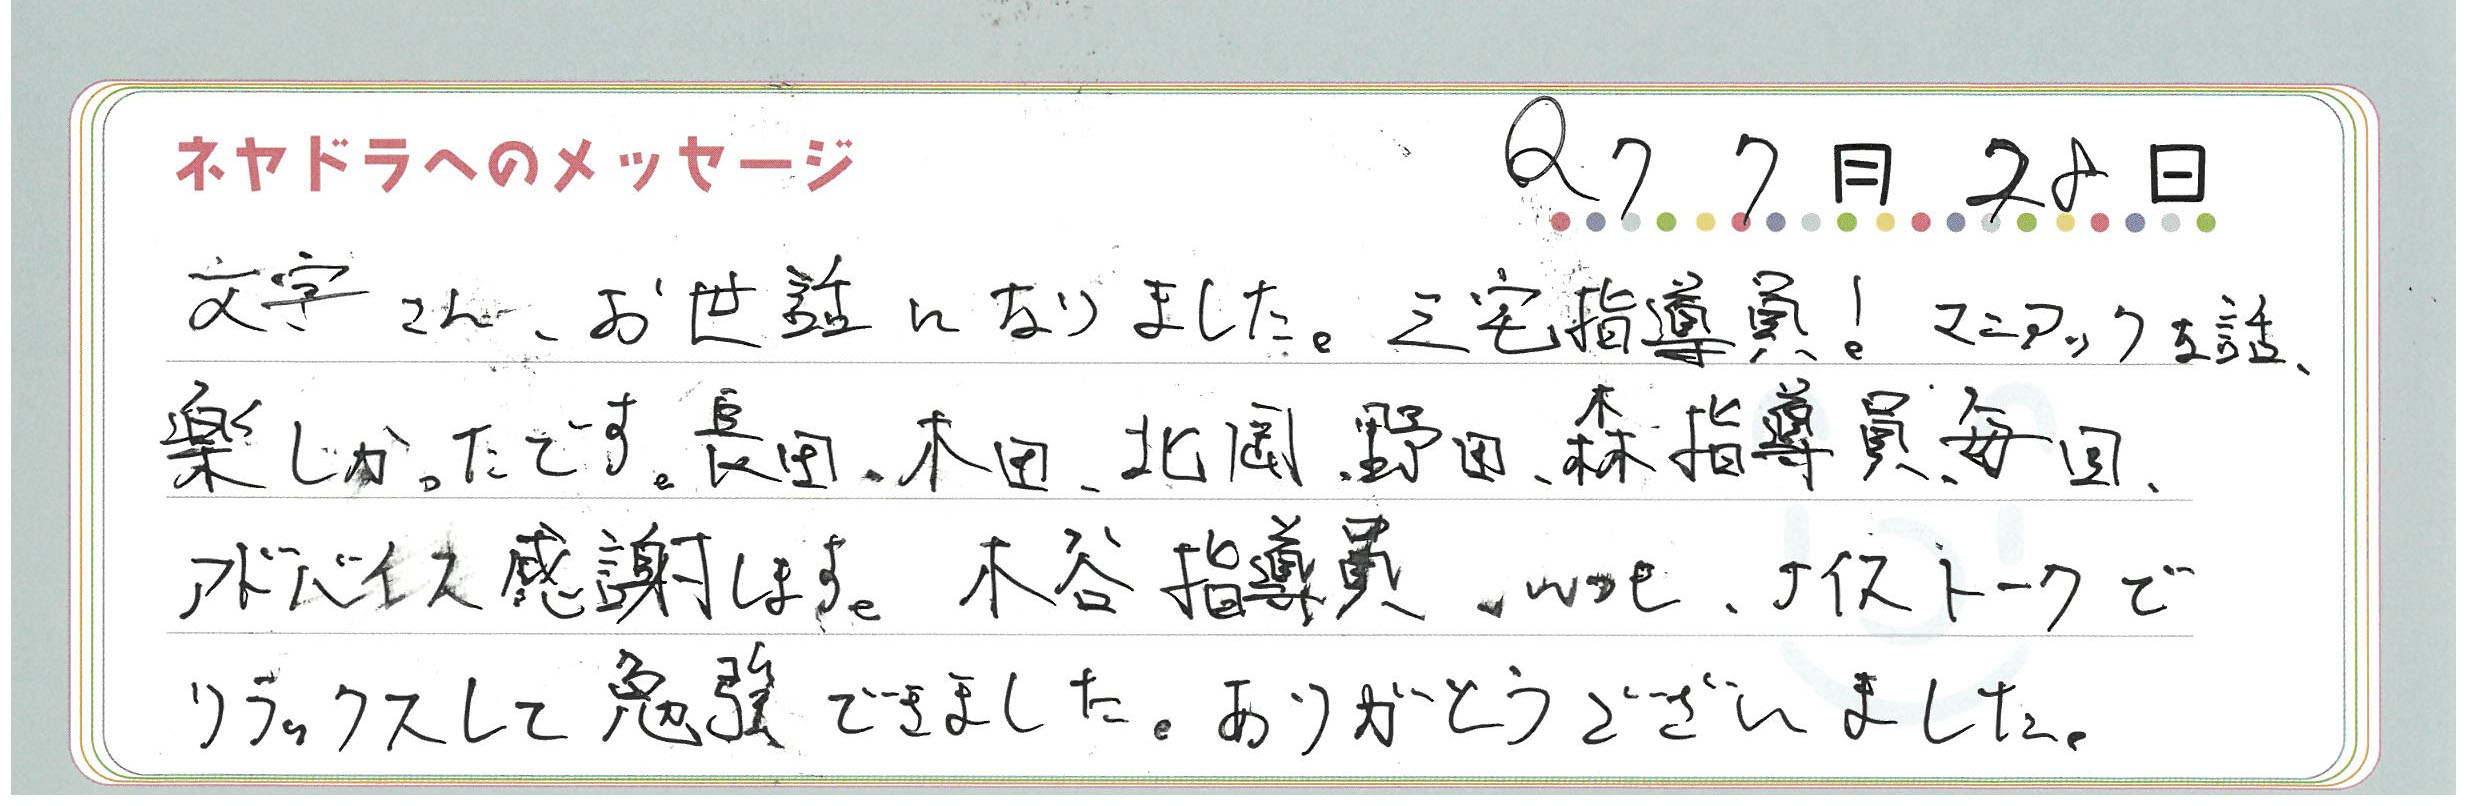 ネヤドラへのメッセージ
Q7 7月28日
文字さん、お世話になりました。三宅指導員！マニアックな話、
楽しかったです。長田、木田、北岡、野田、森指導員、毎回、
アドバイス感謝します。木谷指導員、いつも、ナイストークで
リラックスして勉強できました。ありがとうございました。